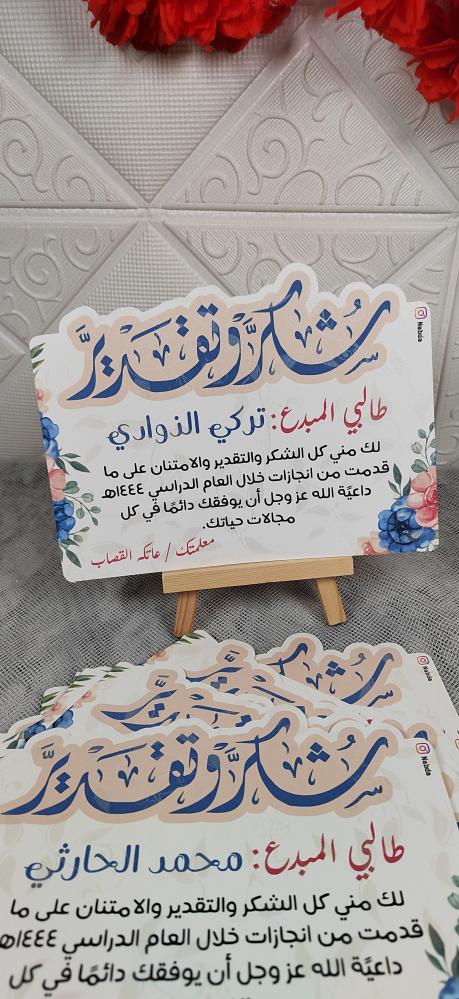 شكر وتقدير
Nabda
طالبي المبدع: تركي الذوادي
لك مني كل الشكر والتقدير والامتنان على ما
قدمت من انجازات خلال العام الدراسي ١٤٤٤هـ
داعيًة الله عز وجل أن يوفقك دائمًا في كل
مجالات حياتك.
معلمتك / عاتكه القصاب
Nabda
شكر وتقدير
Nabda
طالبي المبدع: محمد الحارثي
لك مني كل الشكر والتقدير والامتنان على ما
قدمت من انجازات خلال العام الدراسي ١٤٤٤هـ
داعيًة الله عز وجل أن يوفقك دائمًا في كل